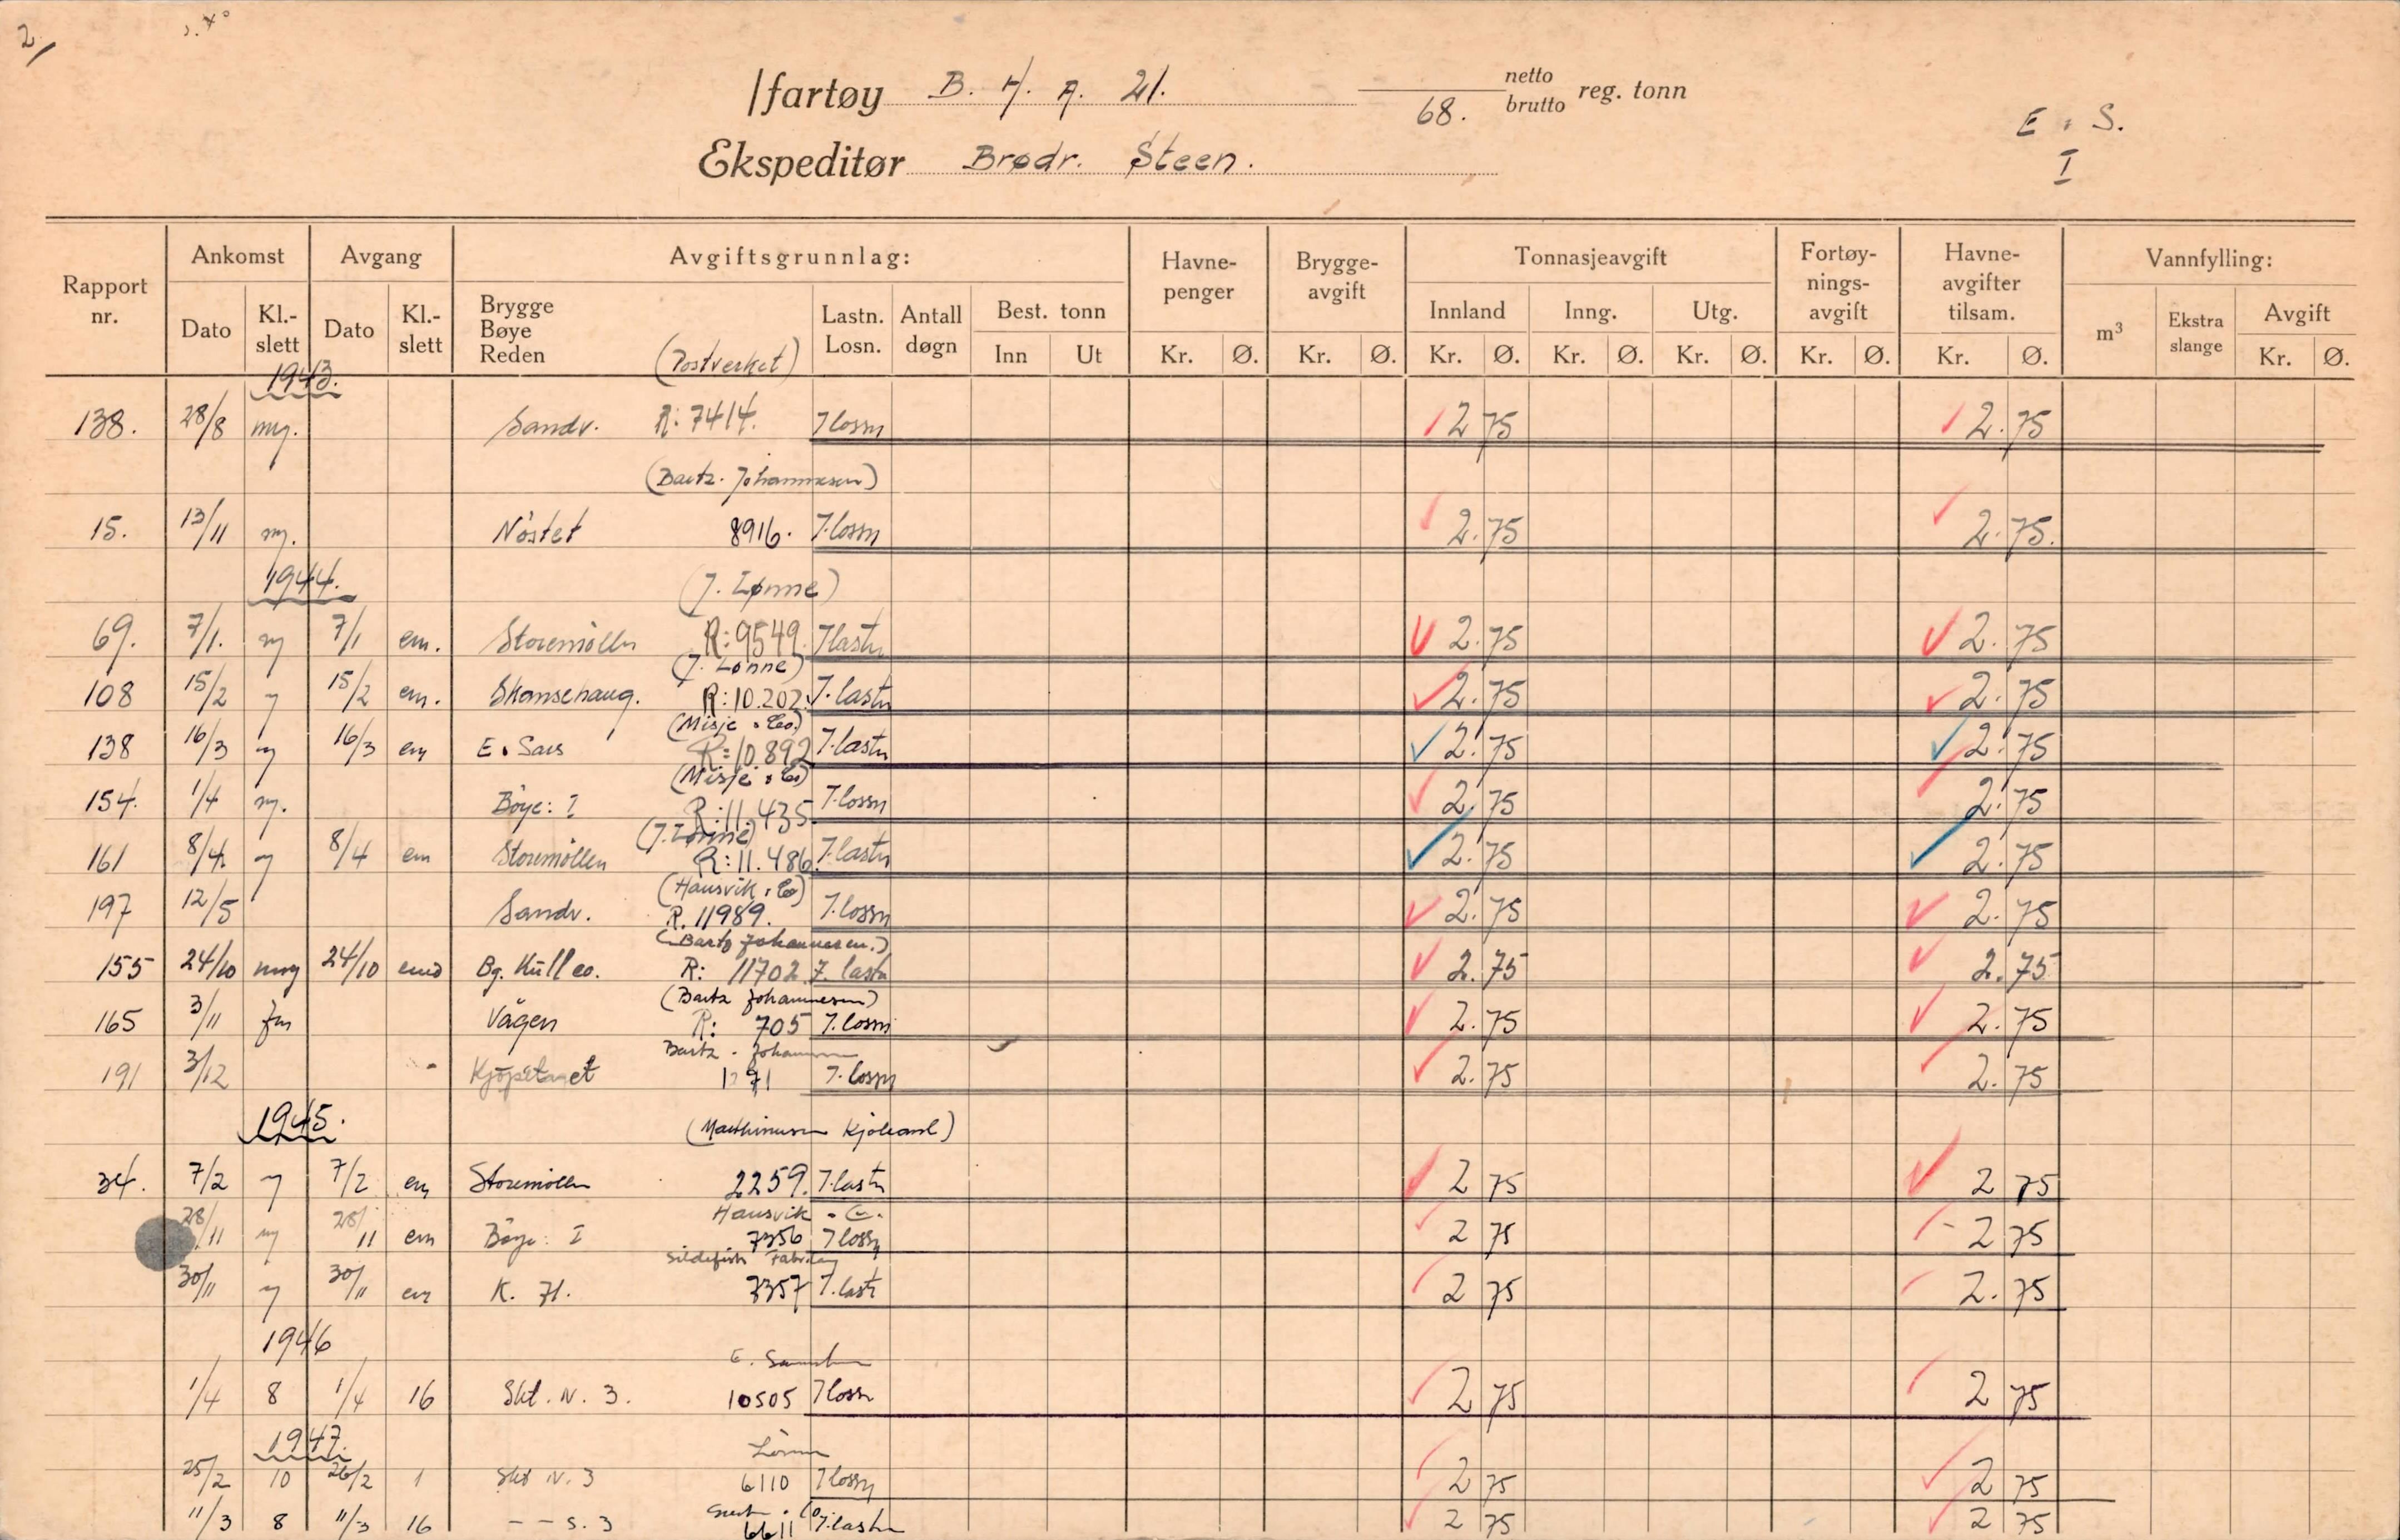 2/
/fartøy B. H. A. 21. 68. netto brutto reg. tonn
E. S.
I
Ekspeditør Brødr. Steen.
Rapport nr. Ankomst Avgang Avgiftsgrunnlag: Havne-penger Brygge-avgift Tonnasjeavgift Fortøy-nings-avgift Havne-avgifter tilsam. Vannfylling:
Dato Kl.-slett Dato Kl.-slett Brygge Bøye Reden Lastn. Losn. Antall døgn Best. tonn Innland Inng. Utg. m³ Ekstra slange Avgift
Inn Ut Kr. Ø. Kr. Ø. Kr. Ø. Kr. Ø. Kr. Ø. Kr. Ø. Kr. Ø. Kr. Ø.
1943. (Postverket)
138. 28/8 mg. Sandv. R: 7414. I lossn 2 75 2.75
(Bartz. Johannesen)
15. 13/11 mg. Nöstet 8916. I. lossn 2.75 2.75.
1944. (J. Lønne)
69. 7/1. 7/1 em. Storemöllen R: 9549. I lastn 2.75 2.75
(J. Lønne)
108 15/2 15/2 em. Skansehaug. R: 10.202. I. lastn 2.75 2.75
(Misje & Co.)
138 16/3 16/3 em E. Sars R: 10.892 I. lastn 2.75 2.75
(Misje & Co)
154. 1/4 Böye: I R: 11.435 I. lossn 2.75 2.75
(J. Lønne)
161 8/4. 8/4 em Storemöllen R: 11.486. I. lastn 2.75 2.75
(Hausvik & Co)
197 12/5 Sandv. R. 11989. I. lossn 2.75 2.75
(Bartz Johannesen.)
155 24/10 24/10 Bg. Kull co. R: 11702 I. lastn 2.75 2.75
(Bartz Johannesen)
165 3/11 fm Vågen R: 705 I. lossn 2.75 2.75
Bartz. Johannesen
191 3/12 I. lossn 2.75 2.75
1945.
34. 7/2 7/2 em Storemöllen 2259. I. lastn 2 75 2 75
Hausvik & Co.
28/11 28/11 em Böye: I 7356 I lossn 2 75 2 75
30/11 30/11 em K. H. 7357 I. lastn 2 75 2.75
1946
1/4 8 1/4 16 Skt. N. 3. 10505 I lossn 2 75 2 75
1947. Lönne
25/2 10 26/2 1 Skt N. 3 6110 I lossn 2 75 2 75
11/3 8 11/3 16 - - S. 3 6611 I. lastn 2 75 2 75